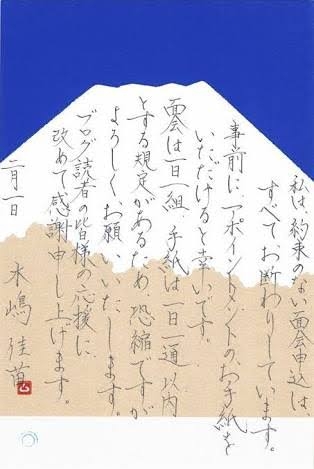 私は約束のない面会申込は、
すべてお断わりしています。
事前にアポイントメントのお手紙を
いただけると幸いです。
面会は一日一組、手紙は一日一通以内
とする規定があるため、恐縮ですが
よろしくお願いいたします。
ブログ読者の皆様の応援に
改めて感謝申し上げます。
二月一日
木嶋佳苗